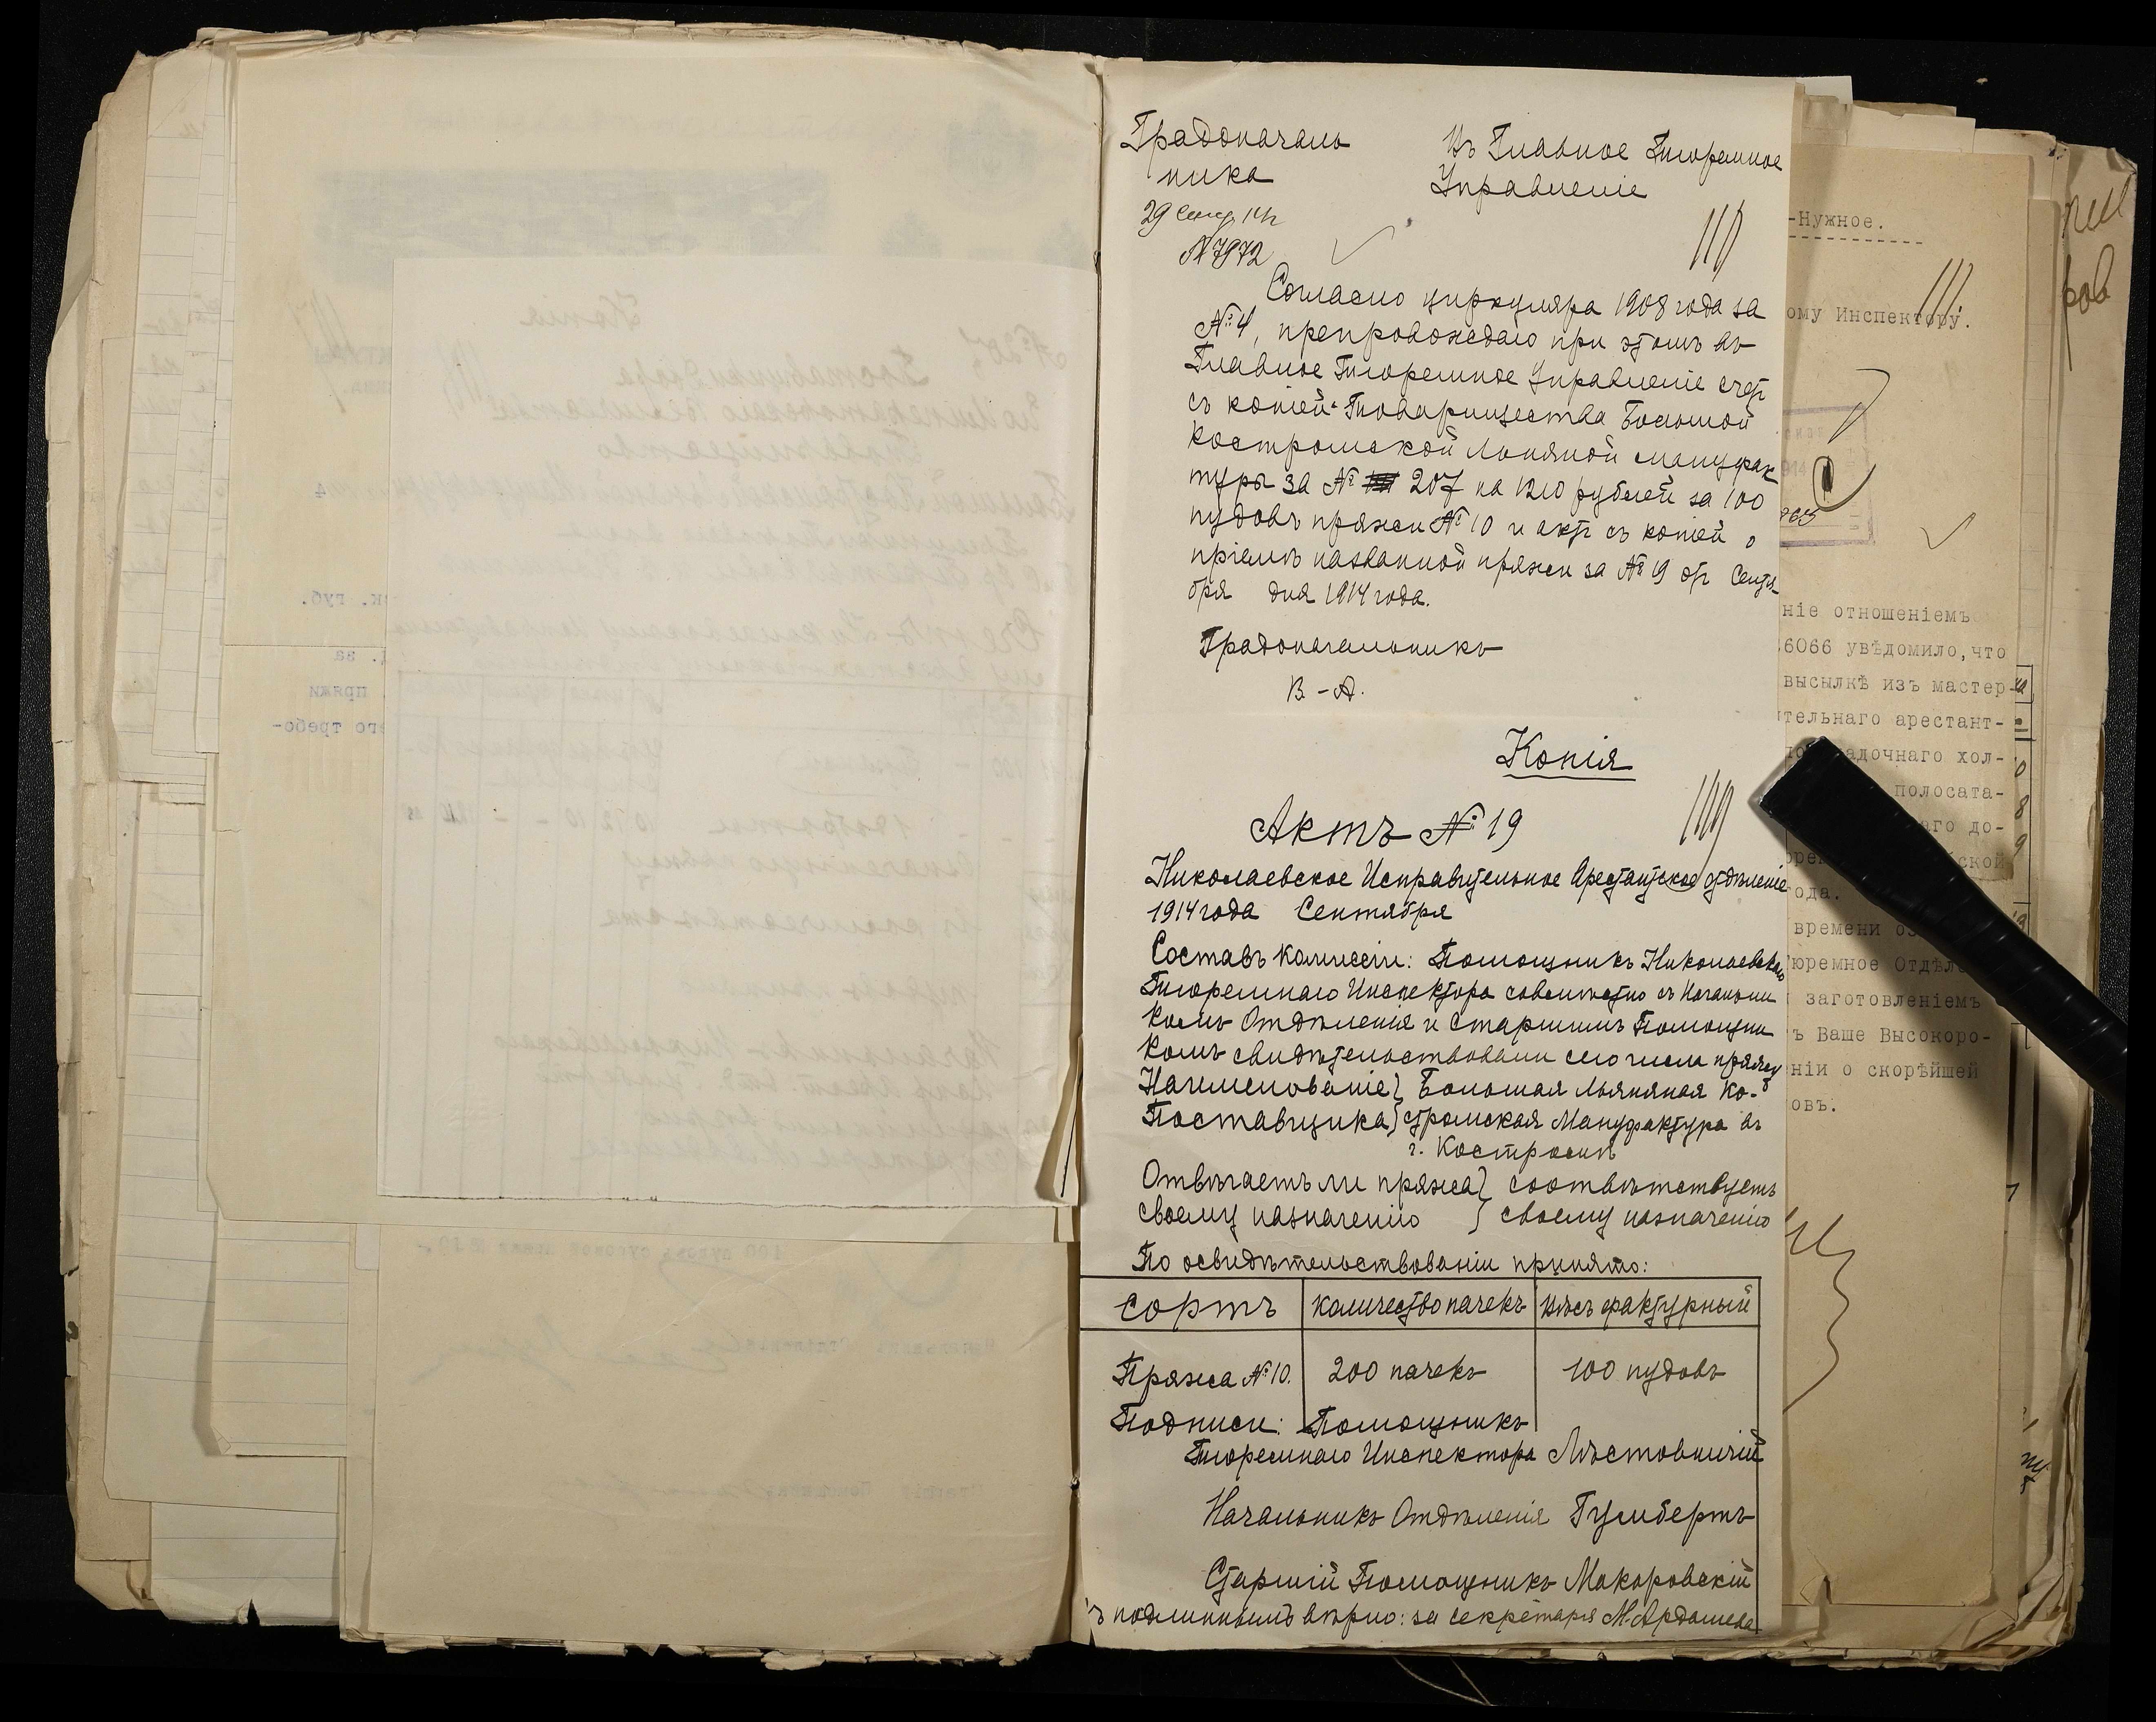 Градоначаль
ника
29 Сент. 14 г.
№ 7972
Въ Главное Тюремное
Управленіе
Согласно циркуляра 1908 года за
№ 4, препровождаю при этомъ въ
Главное Тюремное Управленіе счет
съ копіей Товарищества Большой
Костромской Льняной мануфак
туры за № 207 на 1210 рублей за 100
пудовъ пряжи № 10 и акт съ копіей о
пріемѣ названной пряжи за № 19 от Сентя-
бря дня 1914 года.
Градоначальникъ
В. - А.
Копія
Актъ № 19
Николаевское Исправительное Арестантское отдѣленіе
1914 года Сентября
Составъ комиссіи: Помощникъ Николаевскаго
Тюремнаго Инспектора совместно съ Начальни
комъ Отдѣленія и Старшимъ Помощни
комъ свидѣтельствовали сего числа пряжу
Наименованіе } Большая Льняная Ко-
Поставщика } стромская Мануфактура въ
г. Костромѣ
Отвѣчаетъ ли пряжа } соотвѣтствуетъ
своему назначенію } своему назначенію
По освидѣтельствованіи принято:
Сортъ количество пачекъ вѣсъ фактурный
Пряжа № 10. 200 пачекъ 100 пудовъ
Подписи: Помощникъ
Тюремнаго Инспектора Мѣстовничій
Начальникъ Отдѣленія Гумбертъ
Старшій Помощникъ Макаровскій
ъ подлиннымъ вѣрно: за секретаря М. Ардашева
-Нужное.
ому Инспектору.
ніе отношеніемъ
6066 увѣдомило, что
высылкѣ изъ мастер-
ительнаго арестант-
адочнаго хол-
полосата-
аго до-
ской
ода.
времени
юремное Отдѣл
заготовленіемъ
ъ Ваше Высокоро-
ніи о скорѣйшей
овъ.